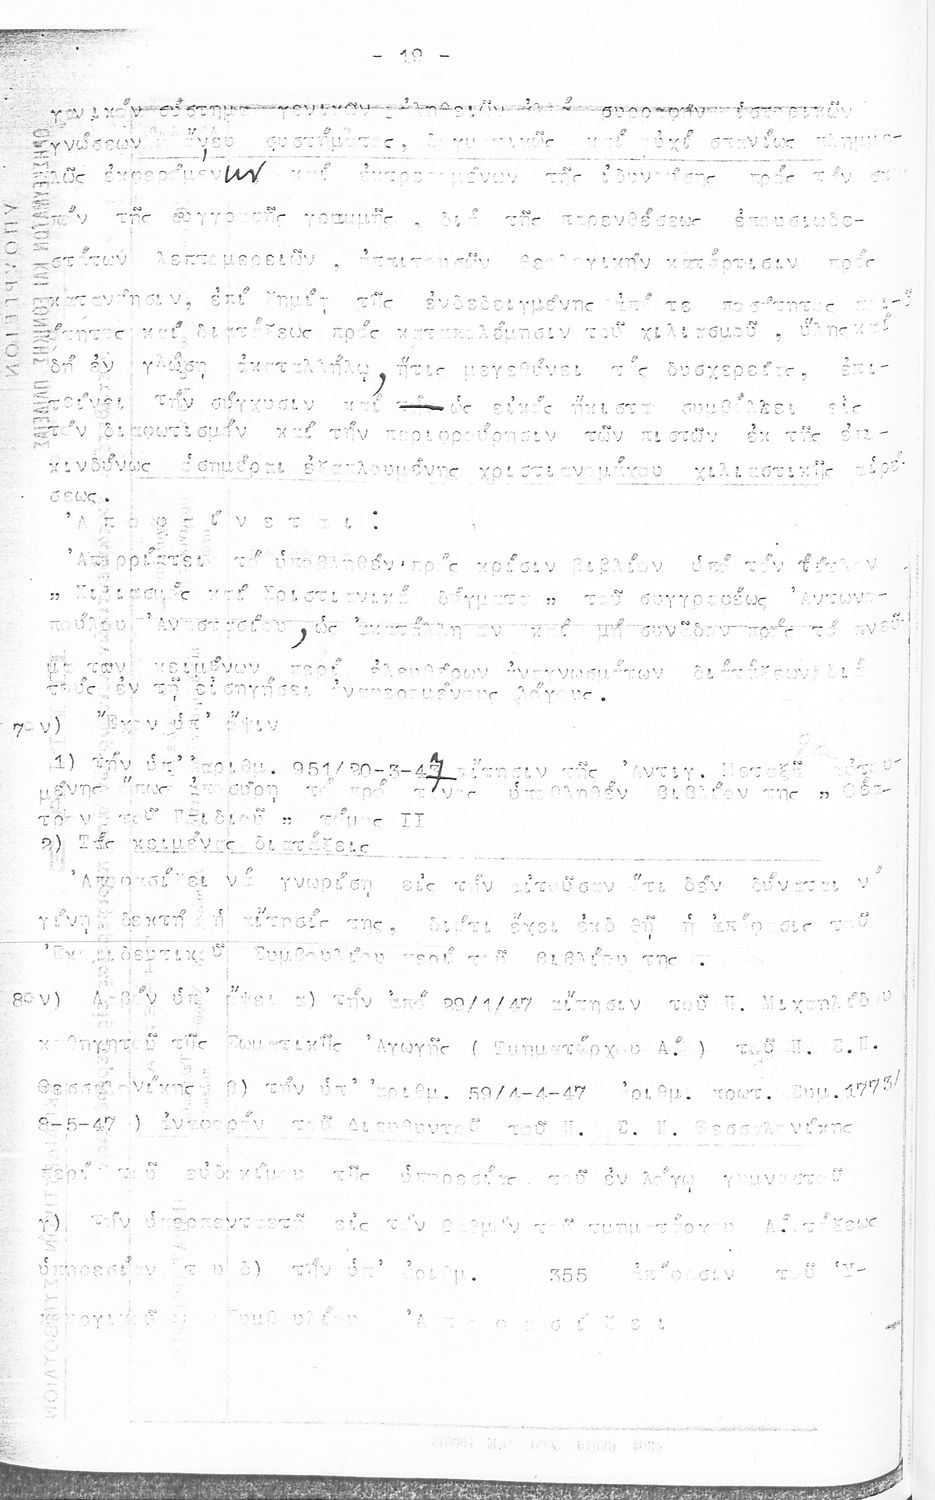 - 19 -
γνώσεων ἄνευ συστήματος, δογματικῶς καί οὐχί σπανίως πλημμε-
λῶς ἐκφερομένων καί ἐκτρεπομένων τῆς ἰθυνούσης πρός τόν σκ
πόν τῆς συγγραφῆς γραμμῆς , διά τῆς παρενθέσεως ἐπουσιωδε-
στάτων λεπτομερειῶν , ἀπαιτουσῶν θεολογικήν κατάρτισιν πρός
κατανόησιν, ἐπί ζημίᾳ τῆς ἐνδεδειγμένης ἀπό τε ποσότητος ποι-
ότητος καί διατάξεως πρός καταπολέμησιν τοῦ χιλιασμοῦ , ὕλης καί
δή ἐν γλώσῃ ἀκαταλλήλῳ, ἥτις μεγεθύνει τάς δυσχερείας, ἐπι-
τείνει τήν σύγχυσιν καί ὡς εἰκός ἥκιστα συμβάλλει εἰς
τόν διαφωτισμόν καί τήν περιφρούρησιν τῶν πιστῶν ἐκ τῆς ἐπι-
κινδύνως ὁσημέραι ἐξαπλουμένης χριστιανομάχου χιλιαστικῆς αἱρέ-
σεως.
Ἀ π ο φ α ί ν ε τ α ι :
Ἀπορρίπτει τό ὑποβληθέν πρός κρίσιν βιβλίον ὑπό τόν τίτλον
" Χιλιασμός καί Χριστιανικά δόγματα " τοῦ συγγραφέως Ἀντωνο-
πούλου Ἀναστασίου, ὡς ἀκατάλληλον καί μή συνᾶδον πρός τό πνεῦ-
μα τῶν κειμένων περί ἐλευθέρων ἀναγνωσμάτων διατάξεων, διά
τούς ἐν τῇ εἰσηγήσει ἀναφερομένους λόγους.
7ον) Ἔχον ὑπ' ὄψιν
1) τήν ὑπ' ἀριθμ. 951/20-3-47 αἴτησιν τῆς Ἀντιγ. Μεταξᾶ αἰτου-
μένης ὅπως ἐγκριθῇ τό πρό τινος ὑποβληθέν βιβλίον της " Θέα-
τρον τοῦ Παιδιοῦ " τόμος ΙΙ
2) Τάς κειμένας διατάξεις
Ἀποφασίζει νά γνωρίσῃ εἰς τήν αἰτοῦσαν ὅτι δέν δύναται νά
γίνῃ δεκτή ἡ αἴτησίς της, διότι ἔχει ἐκδοθῆ ἡ ἀπόφασις τοῦ
Ἐκπαιδευτικοῦ Συμβουλίου περί τοῦ βιβλίου της .
8ον) Λαβόν ὑπ' ὄψει α) τήν ἀπό 29/1/47 αἴτησιν τοῦ Π. Μιχαηλίδου
καθηγητοῦ τῆς Σωματικῆς Ἀγωγῆς ( Τμηματάρχου Α.) τοῦ Π. Σ.Π.
Θεσσαλονίκης β) τήν ὑπ' ἀριθμ. 59/4-4-47 ἀριθμ. πρωτ. Συμ.1773/
8-5-47 ) ἀναφοράν τοῦ Διευθυντοῦ τοῦ Π. Σ. Π. Θεσσαλονίκης
περί τοῦ εὐδοκίμου τῆς ὑπηρεσίας τοῦ ἐν λόγῳ γυμναστοῦ
γ) τήν ὑπερπενταετῆ εἰς τόν βαθμόν τοῦ τμηματάρχου Α. τάξεως
ὑπηρεσίαν του δ) τήν ὑπ' ἀριθμ. 355 ἀπόφασιν τοῦ Ὑ-
Συμβουλίου Ἀ π ο φ α σ ί ζ ε ι